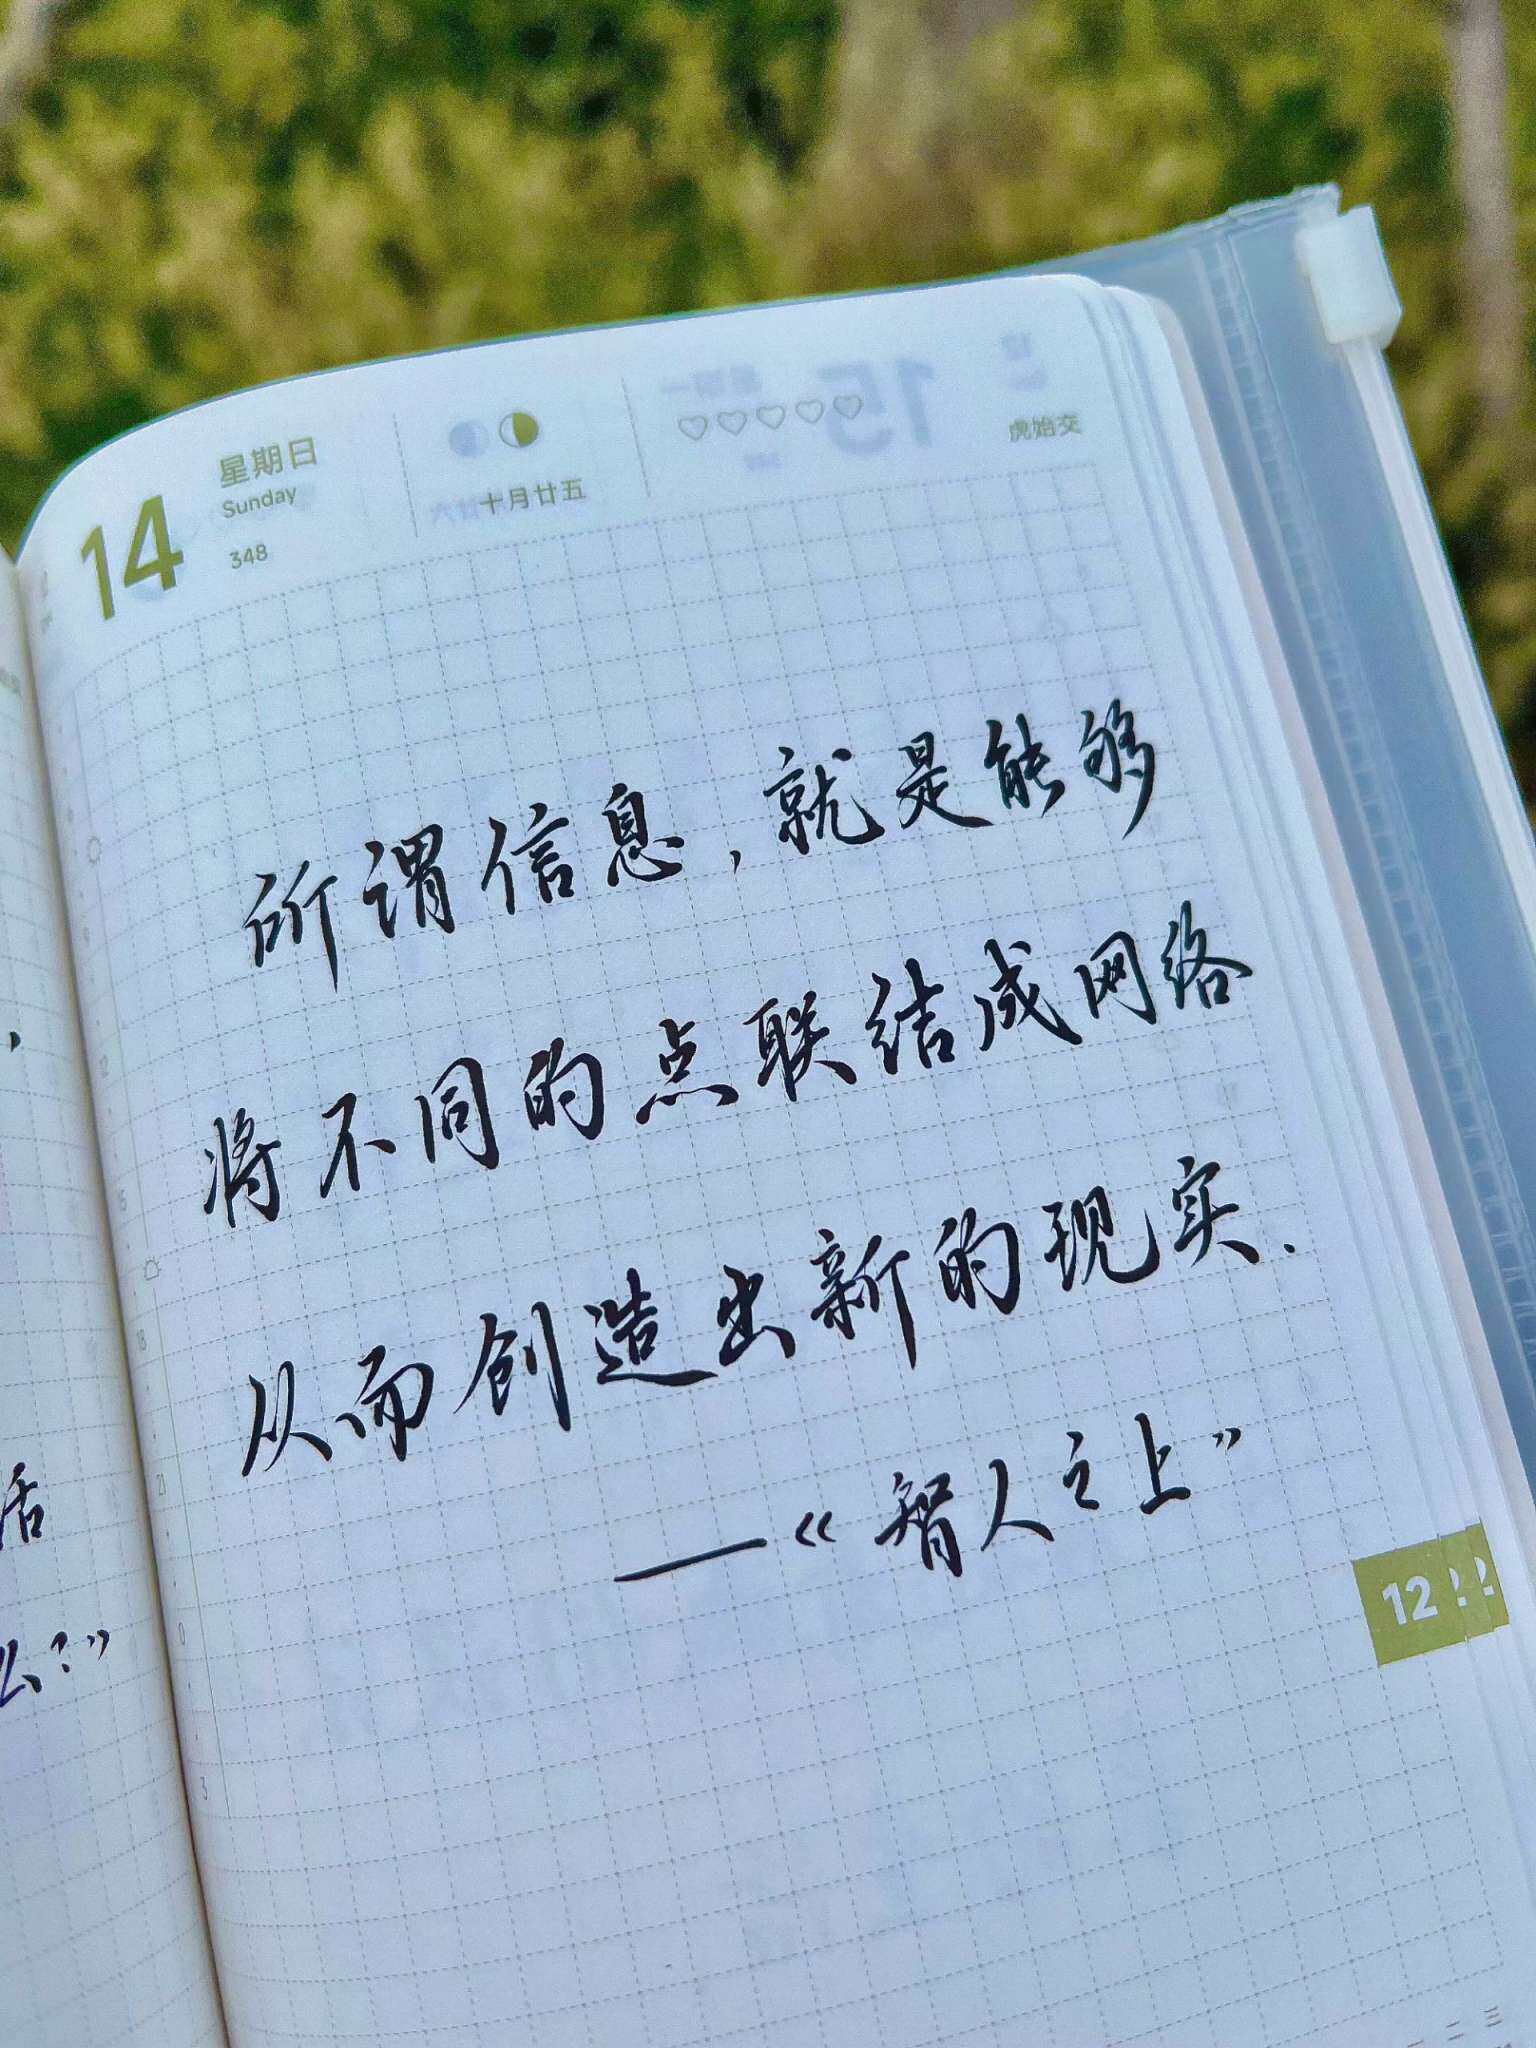 14
星期日
Sunday
348
十月廿五
虎始交
所谓信息，就是能够
将不同的点联结成网络
从而创造出新的现实.
——《智人之上》
12
活
么？”
9
12
15
18
21
0
3